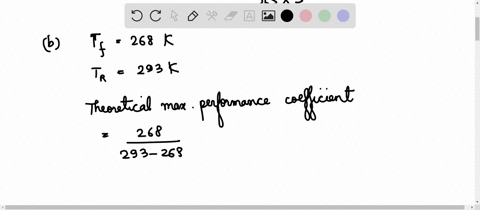 (b) T_f = 268 K
T_R = 293 K
Theoretical max. performance coefficient
= 268 / 293-268